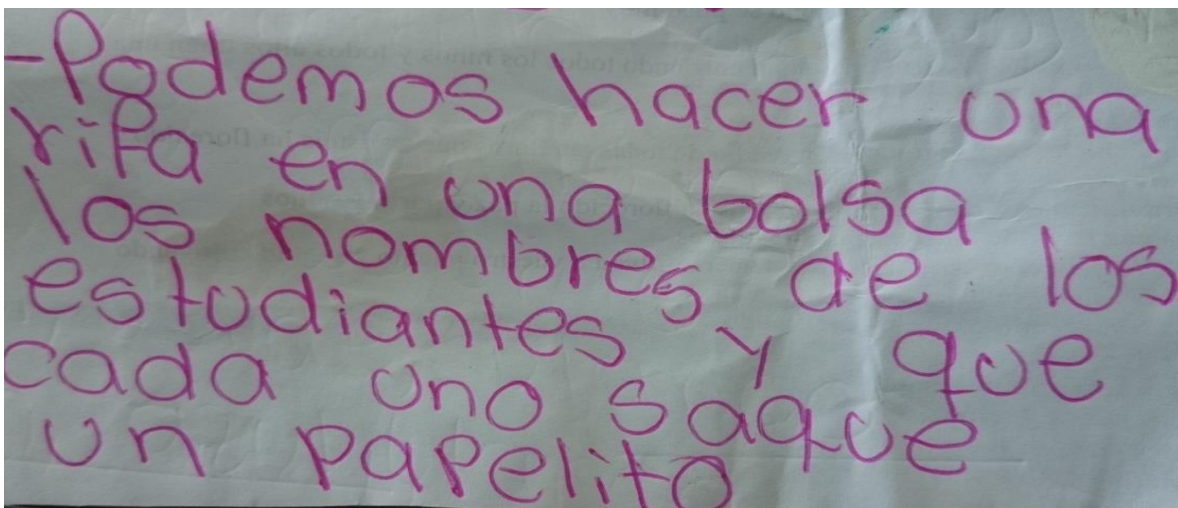 -Podemos hacer una
rifa en una bolsa
los nombres de los
estudiantes y que
cada uno saque
un papelito